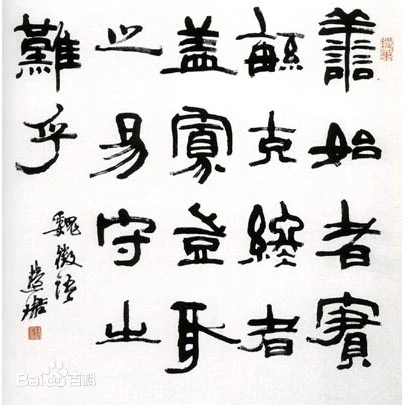 善始者實
繁克終者
蓋寡豈取
之易守之
難乎
魏徵語
Bai du 百科